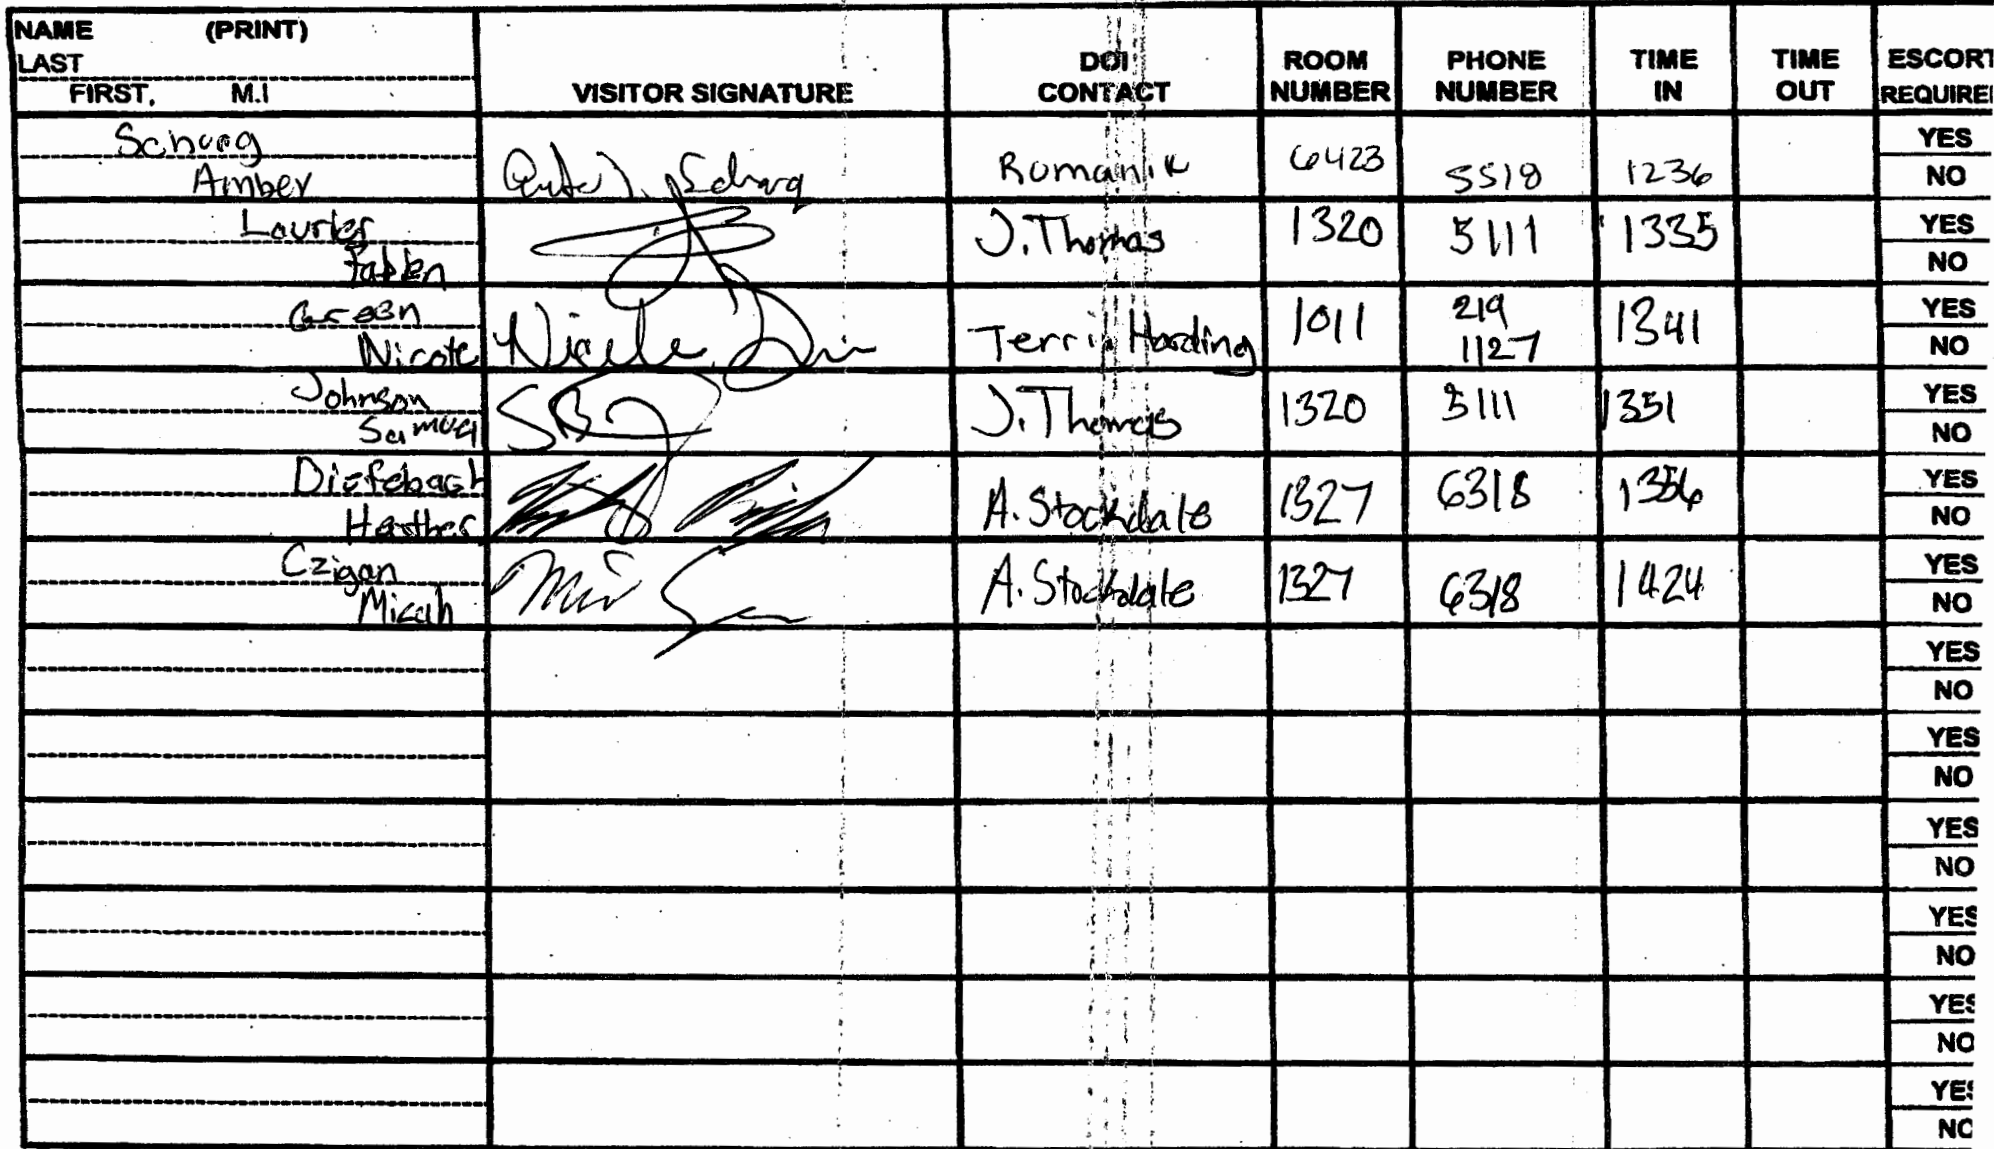 NAME (PRINT)
LAST
FIRST, M.I
VISITOR SIGNATURE
DOI CONTACT
ROOM NUMBER
PHONE NUMBER
TIME IN
TIME OUT
ESCORT
REQUIRE
Schurg
Amber Romanik 6423 5518 1236
YES
NO
J. Thomas 1320 5111 1335
YES
NO
Green
Nicole Terri Harding 1011 219 1127 1341
YES
NO
Johnson
Samuel J. Thomas 1320 5111 1351
YES
NO
Diefebach
Heather A. Stockdale 1327 6318 1356
YES
NO
Czigan
Micah A. Stockdale 1327 6318 1424
YES
NO
YES
NO
YES
NO
YES
NO
YES
NO
YES
NO
YES
NO